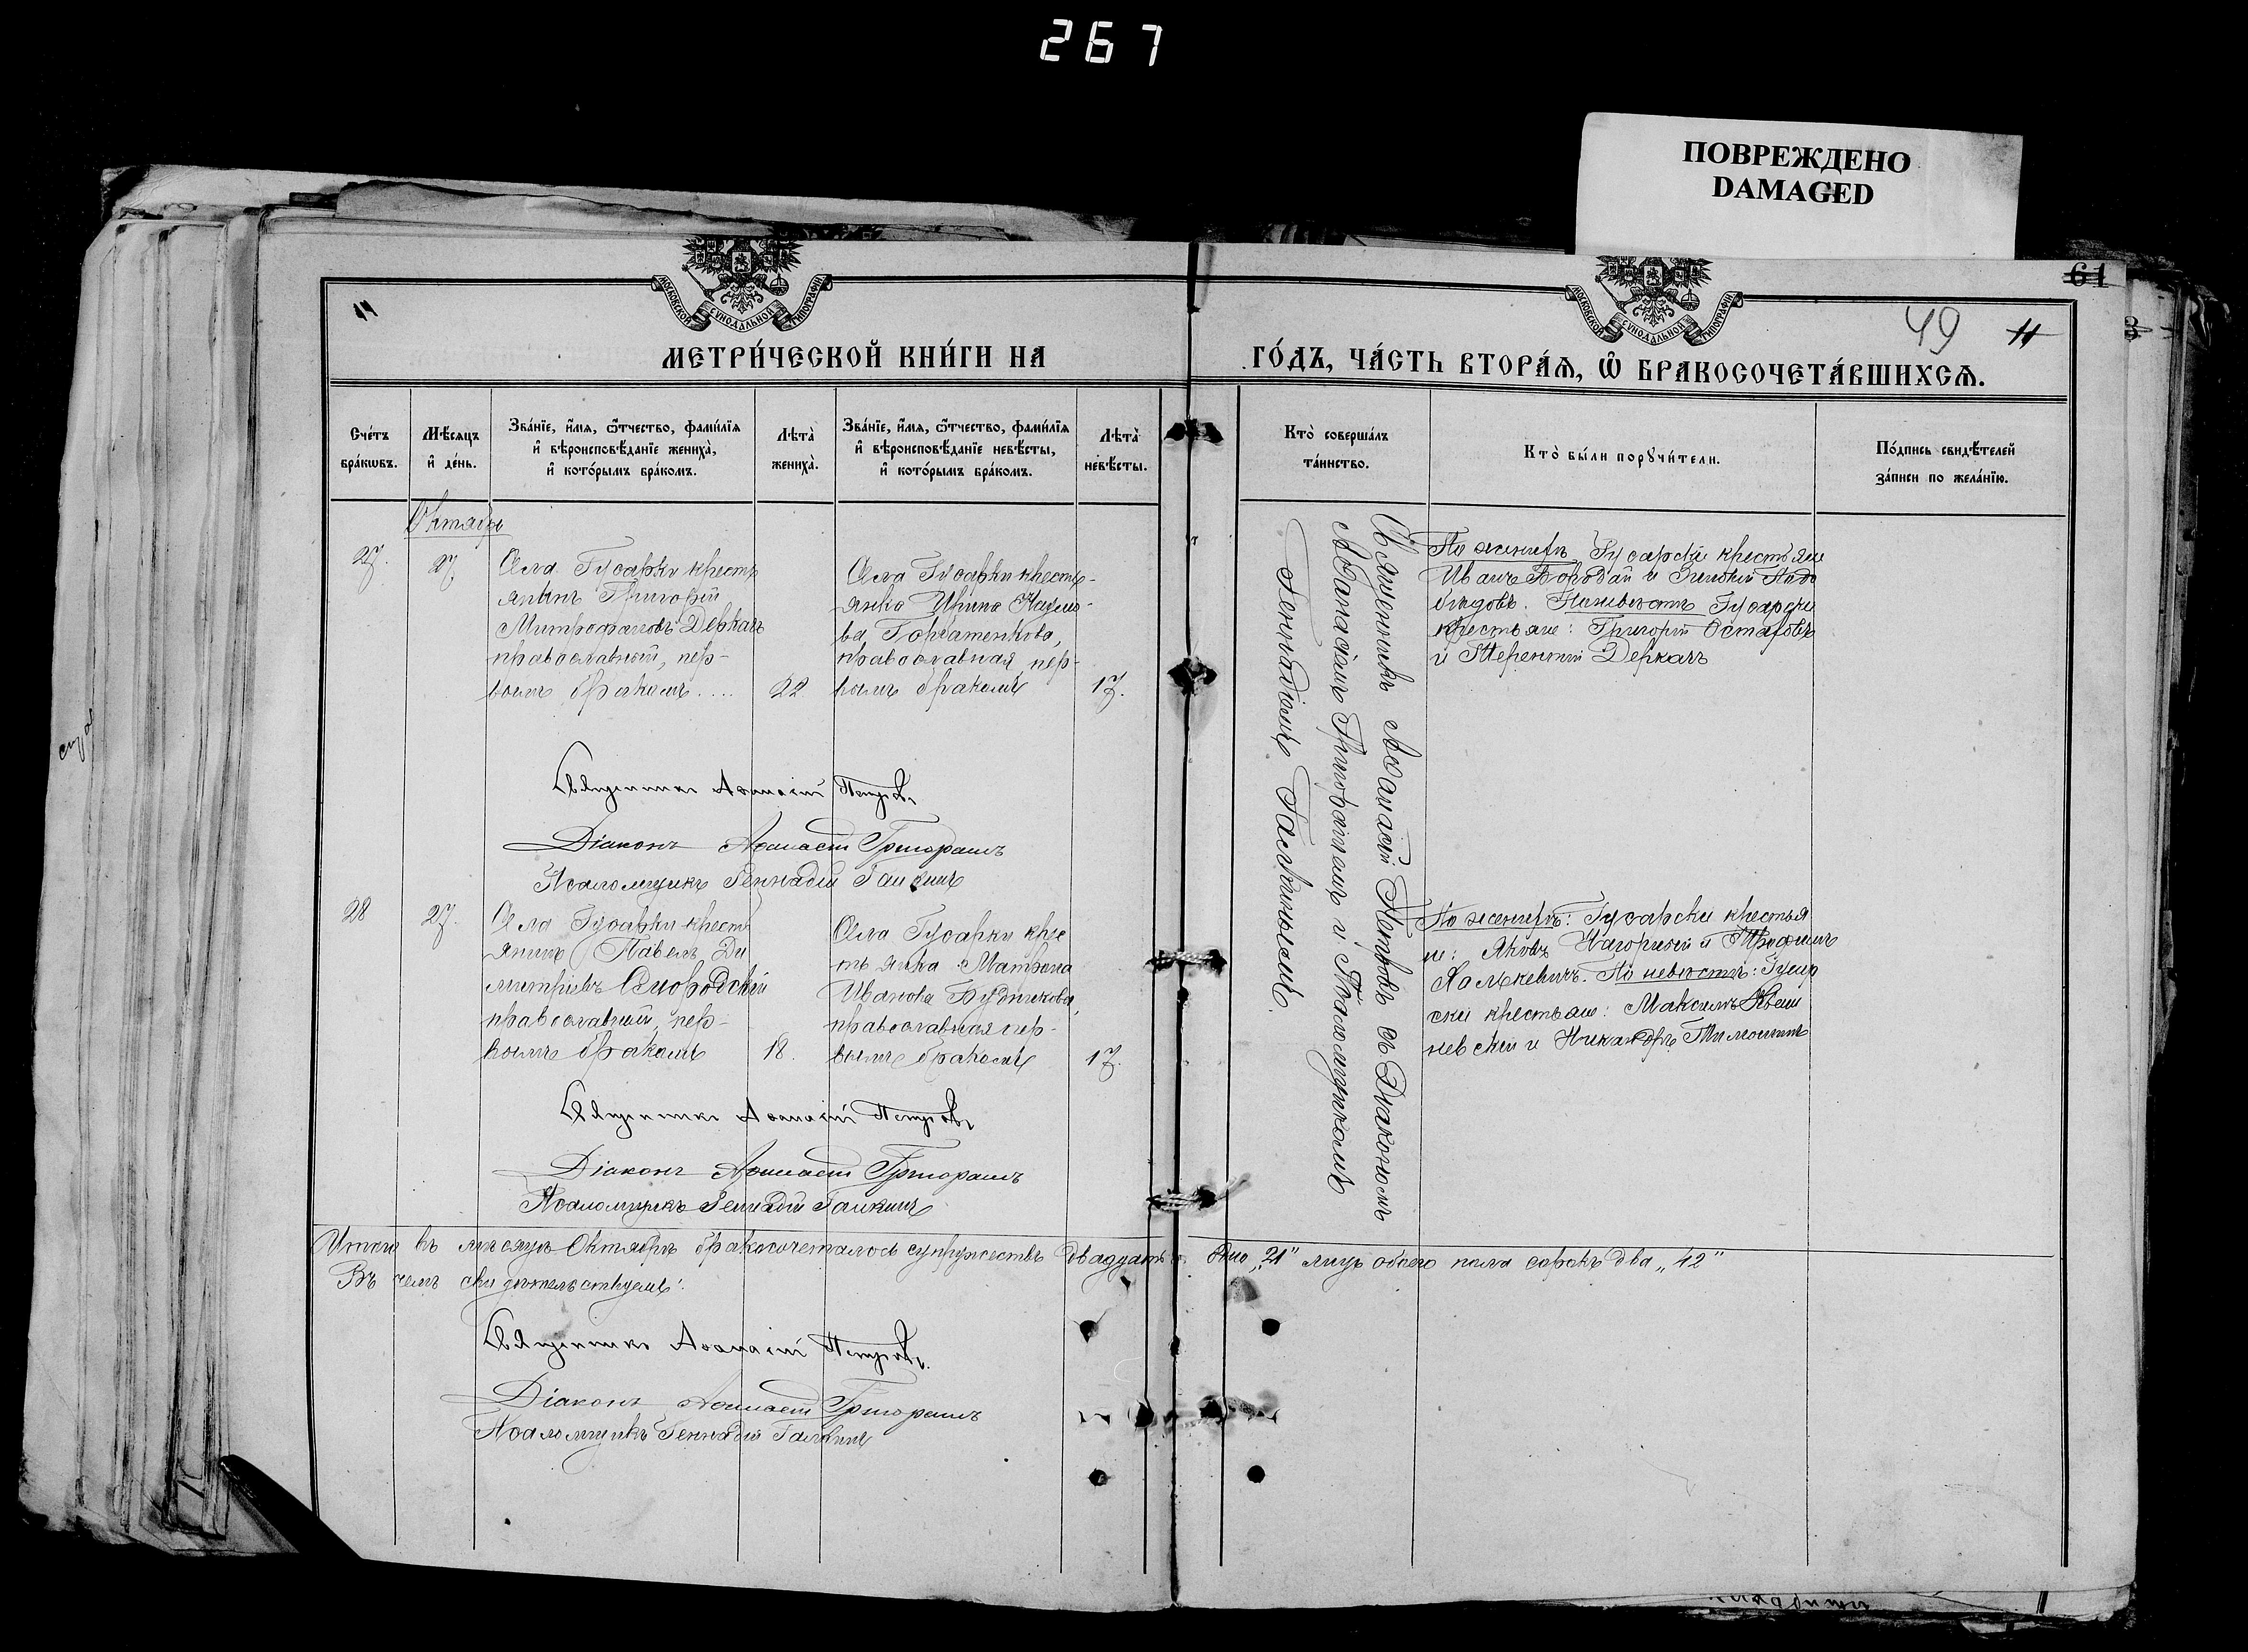 267
ПОВРЕЖДЕНО
DAMAGED
МОСКОВСКОЙ СУНОДАЛЬНОЙ ТИПОГРАФІИ
МОСКОВСКОЙ СУНОДАЛЬНОЙ ТИПОГРАФІИ
61
11
49 11
МЕТРИ́ЧЕСКОЙ КНИ́ГИ НА
ГО́ДЪ, ЧА́СТЬ ВТОРА́Ѧ, Ѡ БРАКОСОЧЕТА́ВШИХСѦ.
Сче́тъ
бра́кѡвъ.
Мѣ́сяцъ
и҆ де́нь.
Зва́нїе, и҆́мя, ѻ҆́тчество, фами́лїя
и҆ вѣроисповѣ́данїе жениха̀,
и҆ кото́рымъ бра́комъ.
Лѣта̀
жениха̀.
Зва́нїе, и҆́мя, ѻ҆́тчество, фами́лїя
и҆ вѣроисповѣ́данїе невѣ́сты,
и҆ кото́рымъ бра́комъ.
Лѣта̀
невѣ́сты.
Кто̀ соверша́лъ
та́инство.
Кто̀ бы́ли порꙋчи́тели.
По́дпись свидѣ́телей
за́писи по жела́нїю.
Октябрь
27.
27
Села Гусарки кресть
янинъ Григорій
Митрофановъ Деркачъ
православный, пер-
вымъ бракомъ....
22
Села Гусарки кресть-
янка Ирина Наумо-
ва Горбатенкова,
православная, пер-
вымъ бракомъ
17.
Священникъ Аѳанасій Петровъ съ Діакономъ
Аѳанасіемъ Григорашемъ и Псаломщикомъ
Геннадіемъ Галкинымъ.
По женихѣ Гусарскіе крестьяне
Иванъ Бородай и
По невѣстѣ Гусарскіе
крестьяне: Григорій Остаповъ
и Терентій Деркачъ
Священникъ Аѳанасій Петровъ
Діаконъ Аѳанасій Григорашъ
Псаломщикъ Геннадій Галкинъ
28
27.
Села Гусарки кресть
янинъ Павелъ Ди
митріевъ
православный, пер-
вымъ бракомъ
18.
Села Гусарки крес
тьянка Матрона
Иванова Будникова,
православная пер-
вымъ бракомъ
17.
По женихѣ: Гусарскіе крестья
не: Яковъ Нагорный и Трофимъ
По невѣстѣ: Гусар
скіе крестьяне: Максимъ
и Никаноръ Тимошинъ
Священникъ Аѳанасій Петровъ
Діаконъ Аѳанасій Григорашъ
Псаломщикъ Геннадій Галкинъ
Итого въ мѣсяцѣ Октябрѣ бракосочеталось супружествъ двадцать одно „21" лицъ обоего пола сорокъ два „42"
Въ чемъ свидѣтельствуемъ:
Священникъ Аѳанасій Петровъ.
Діаконъ Аѳанасій Григорашъ
Псаломщикъ Геннадій Галкинъ